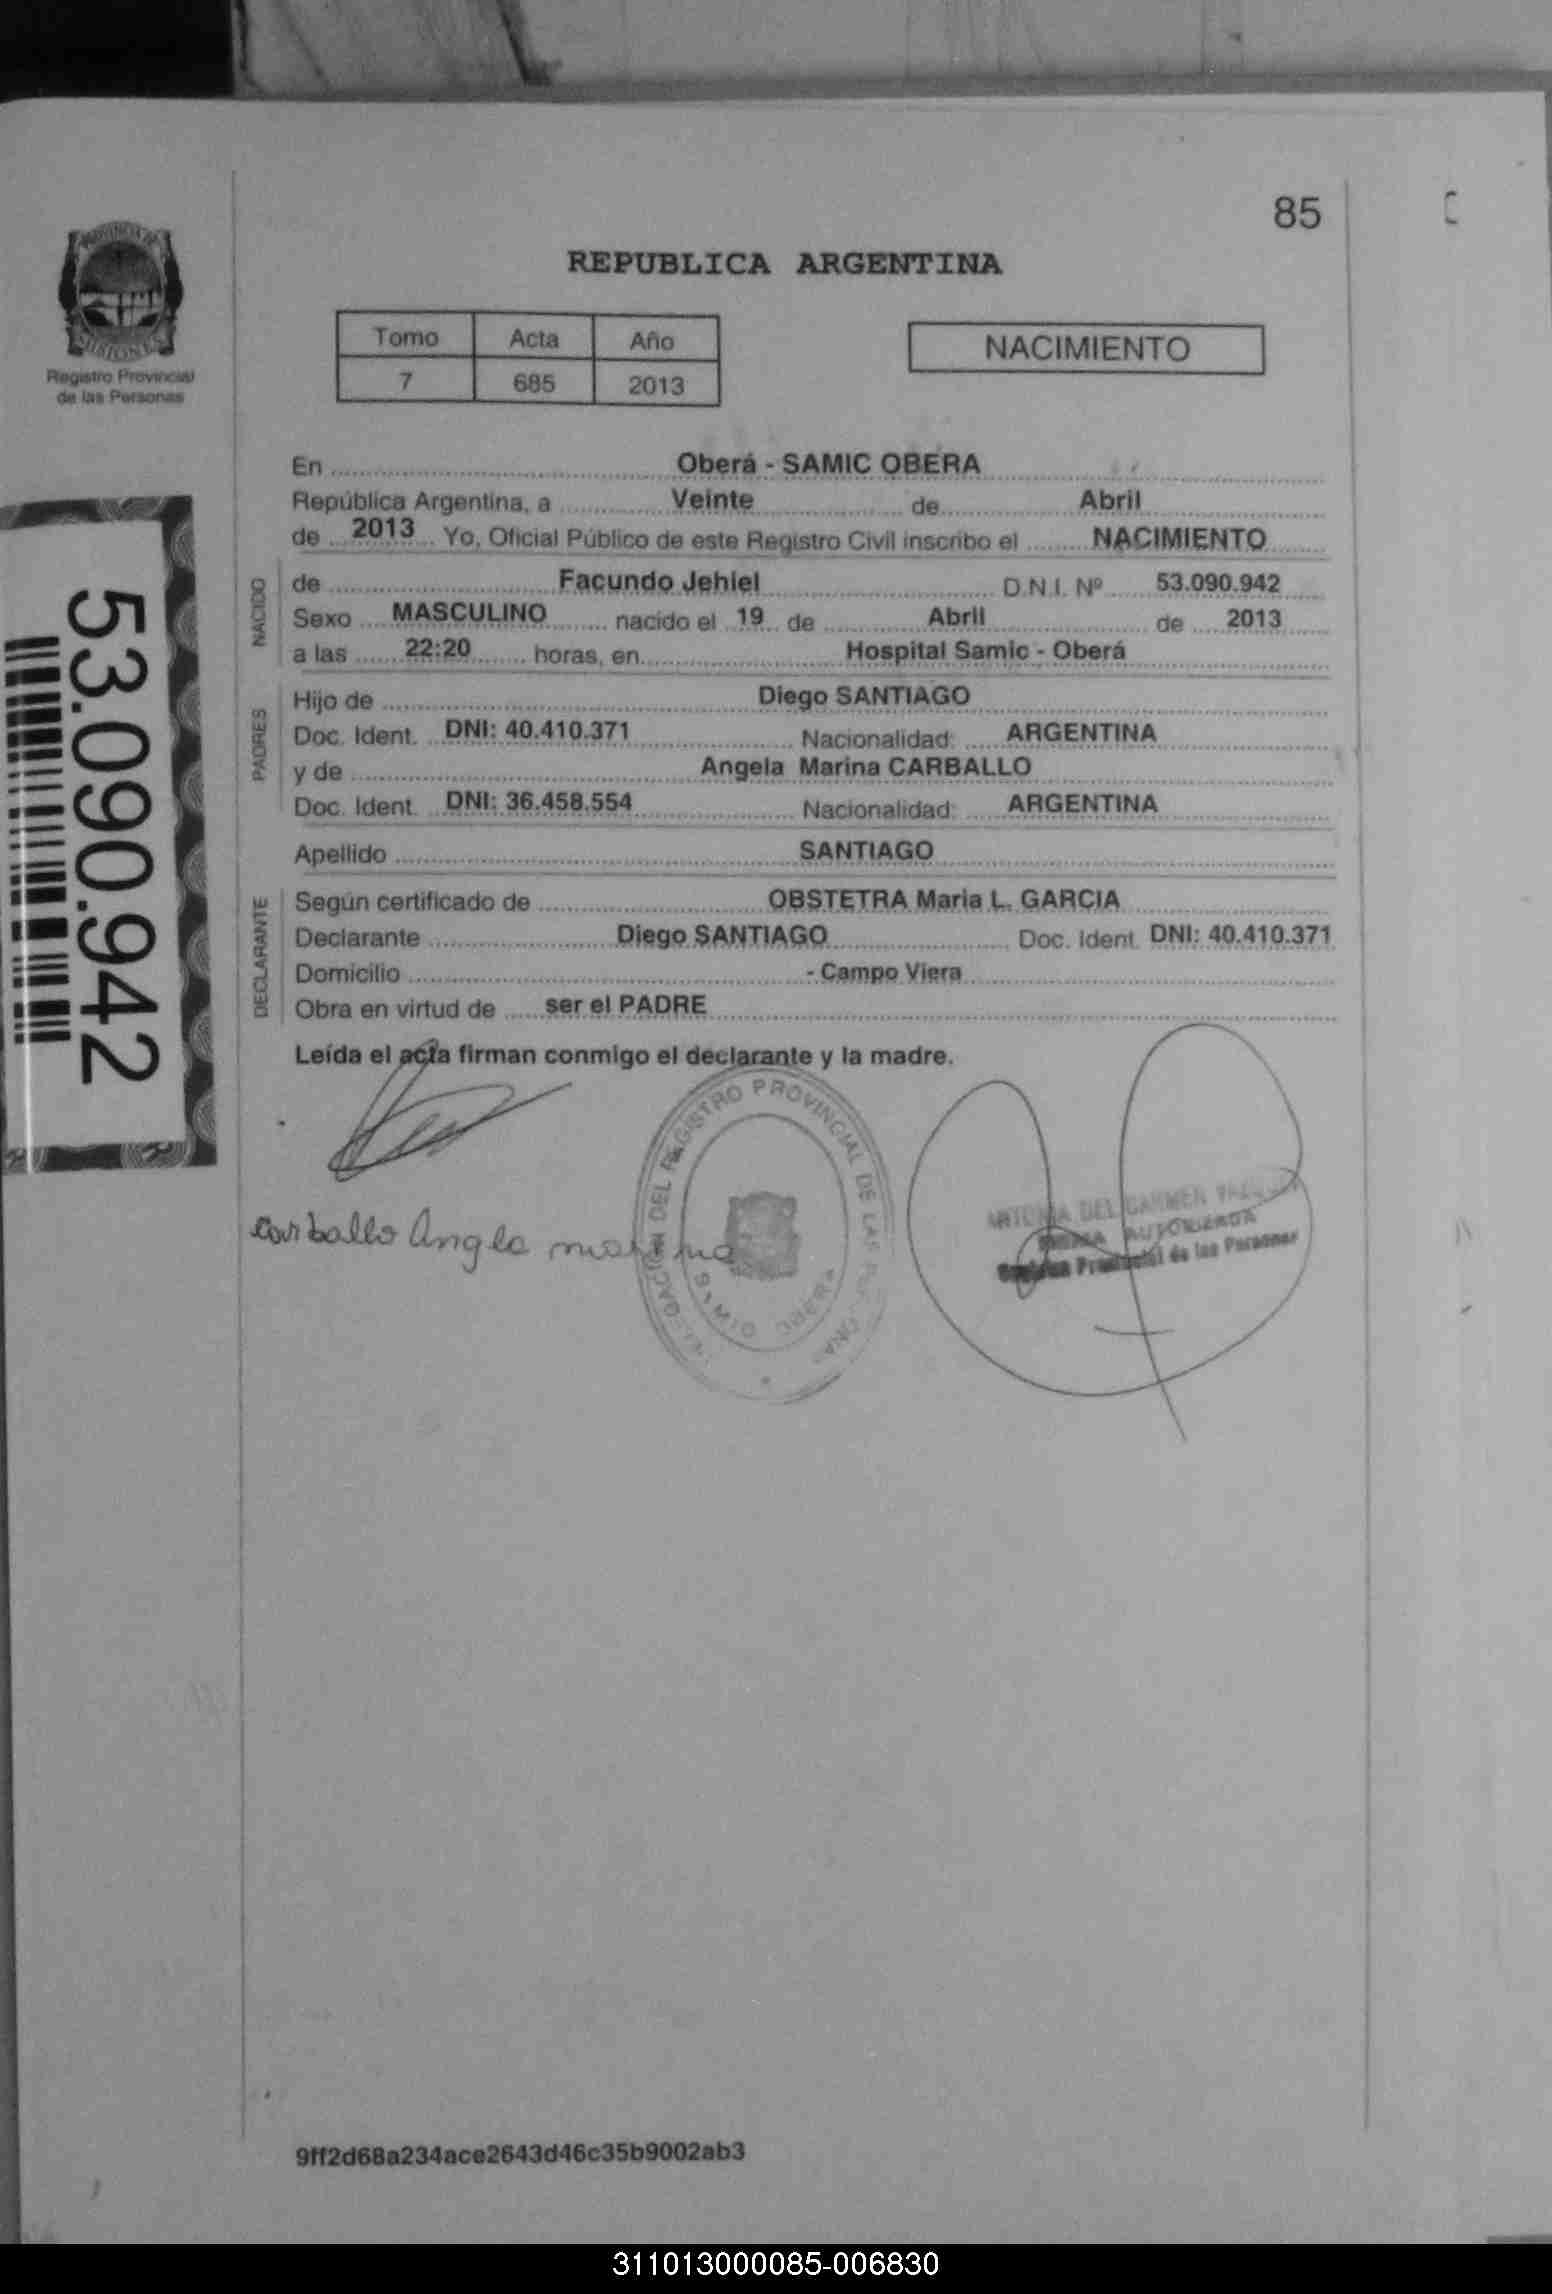 85
REPUBLICA ARGENTINA
PROVINCIA DE
MISIONES
Registro Provincial
de las Personas
Tomo Acta Año
7 685 2013
NACIMIENTO
53.090.942
En Oberá - SAMIC OBERA
República Argentina, a Veinte de Abril
de 2013 Yo, Oficial Público de este Registro Civil inscribo el NACIMIENTO
NACIDO
de Facundo Jehiel D.N.I. Nº 53.090.942
Sexo MASCULINO nacido el 19 de Abril de 2013
a las 22:20 horas, en Hospital Samic - Oberá
PADRES
Hijo de Diego SANTIAGO
Doc. Ident. DNI: 40.410.371 Nacionalidad: ARGENTINA
y de Angela Marina CARBALLO
Doc. Ident. DNI: 36.458.554 Nacionalidad: ARGENTINA
Apellido SANTIAGO
DECLARANTE
Según certificado de OBSTETRA Maria L. GARCIA
Declarante Diego SANTIAGO Doc. Ident. DNI: 40.410.371
Domicilio - Campo Viera
Obra en virtud de ser el PADRE
Leída el acta firman conmigo el declarante y la madre.
DELEGACION DEL REGISTRO PROVINCIAL DE LAS PERSONAS
SAMIC OBERA
Carballo Angela marina
ANTONIA DEL CARMEN
FIRMA AUTORIZADA
Registro Provincial de las Personas
9ff2d68a234ace2643d46c35b9002ab3
311013000085-006830